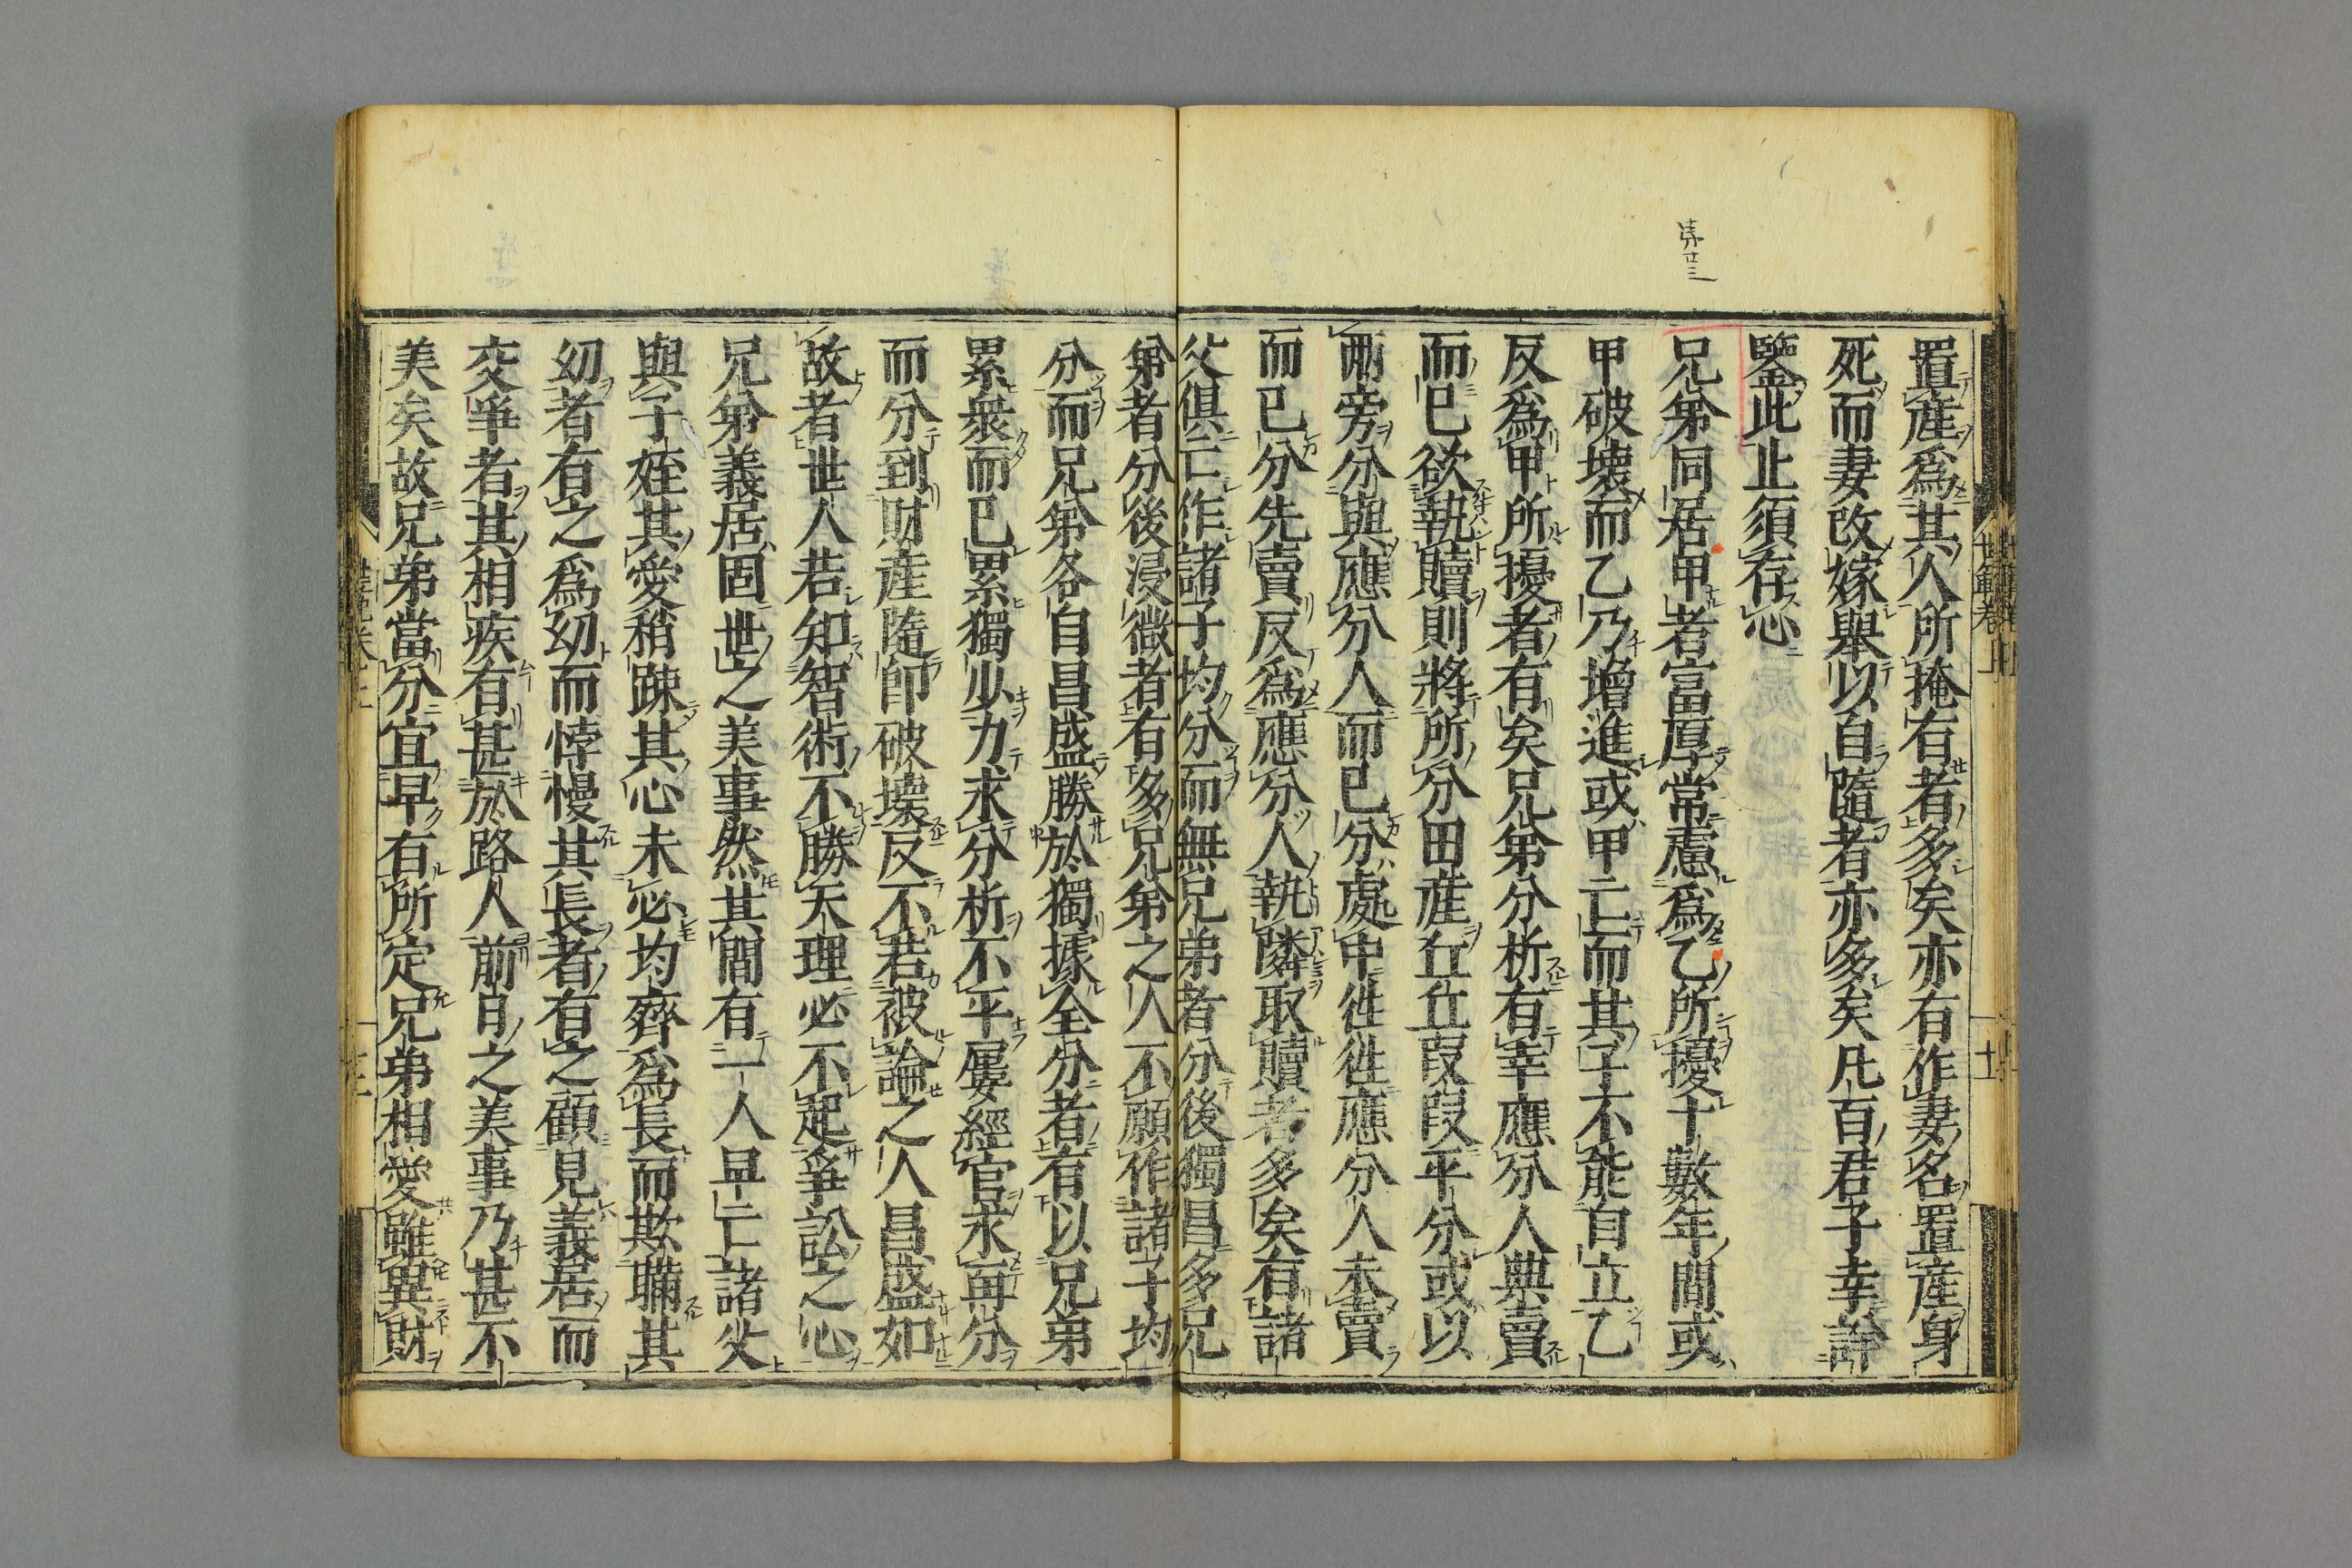 置産爲其人所掩有者多矣亦有作妻名置産身
死而妻改嫁舉以自隨者亦多矣凡百君子幸詳
鑒此止須存心
兄弟同居甲者富厚常慮爲乙所擾十數年間或
甲破壊而乙乃增進或甲亡而其子不能自立乙
反爲甲所擾者有矣兄弟分析有幸應分人典賣
而已欲執贖則將所分田産丘丘段段平分或以
兩旁分與應分人而已分處中徃徃應分人未賣
而已分先賣反爲應分人執隣取贖者多矣有諸
父俱亡作諸子均分而無兄弟者分後獨昌多兄
弟者分後浸微者有多兄弟之人不願作諸子均
分而兄弟各自昌盛勝於獨據全分者有以兄弟
累衆而已累獨少力求分析不平屢經官求再分
而分到財産隨即破壊反不若被論之人昌盛如
故者世人若知智術不勝天理必不起爭訟之心
兄弟義居固世之美事然其間有一人早亡諸父
與子姪其愛稍踈其心未必均齊爲長而欺瞞其
幼者有之爲幼而悖慢其長者有之顧見義居而
交爭者其相疾有甚於路人前日之美事乃甚不
美矣故兄弟當分宜早有所定兄弟相愛雖異財
世範卷上
十一